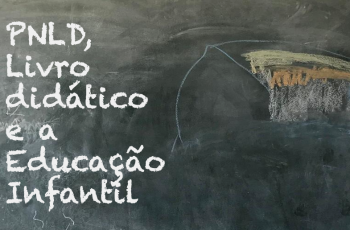 PNLD,
Livro
didático
e a
Educação
Infantil